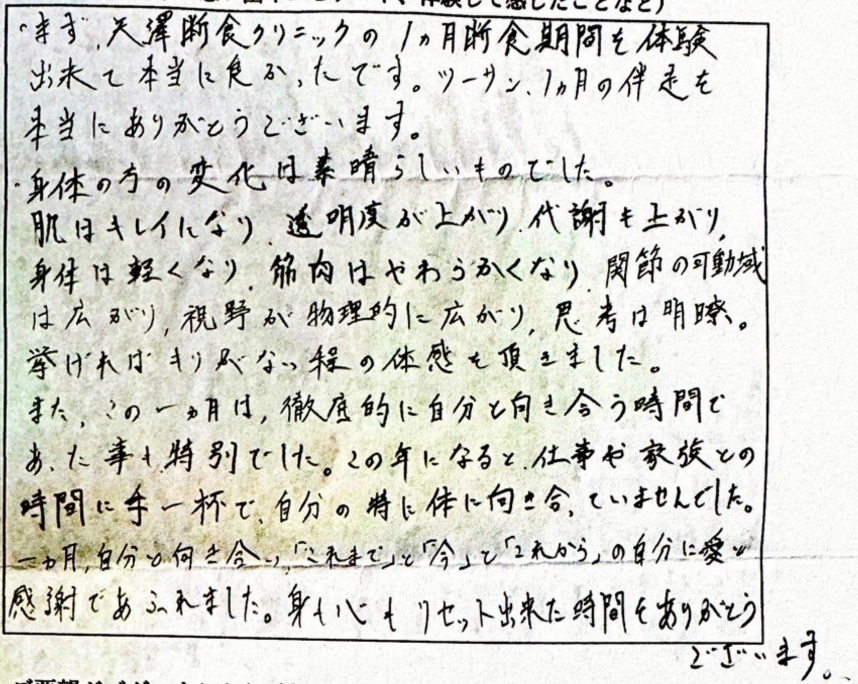 体験して感じたことなど)
・まず、天澤断食クリニックの1ヵ月断食期間を体験
出来て本当に良かったです。ツーサン、1ヵ月の伴走を
本当にありがとうございます。
・身体の方の変化は素晴らしいものでした。
肌はキレイになり、透明度が上がり、代謝も上がり、
身体は軽くなり、筋肉はやわらかくなり、関節の可動域
は広がり、視野が物理的に広がり、思考は明瞭。
挙げればきりがない程の体感を頂きました。
また、この一ヵ月は、徹底的に自分と向き合う時間で
あった事も特別でした。この年になると、仕事や家族との
時間に手一杯で、自分の特に体に向き合っていませんでした。
一ヵ月、自分と向き合い、「これまで」と「今」と「これから」の自分に愛と
感謝であふれました。身も心もリセット出来た時間をありがとう
ございます。